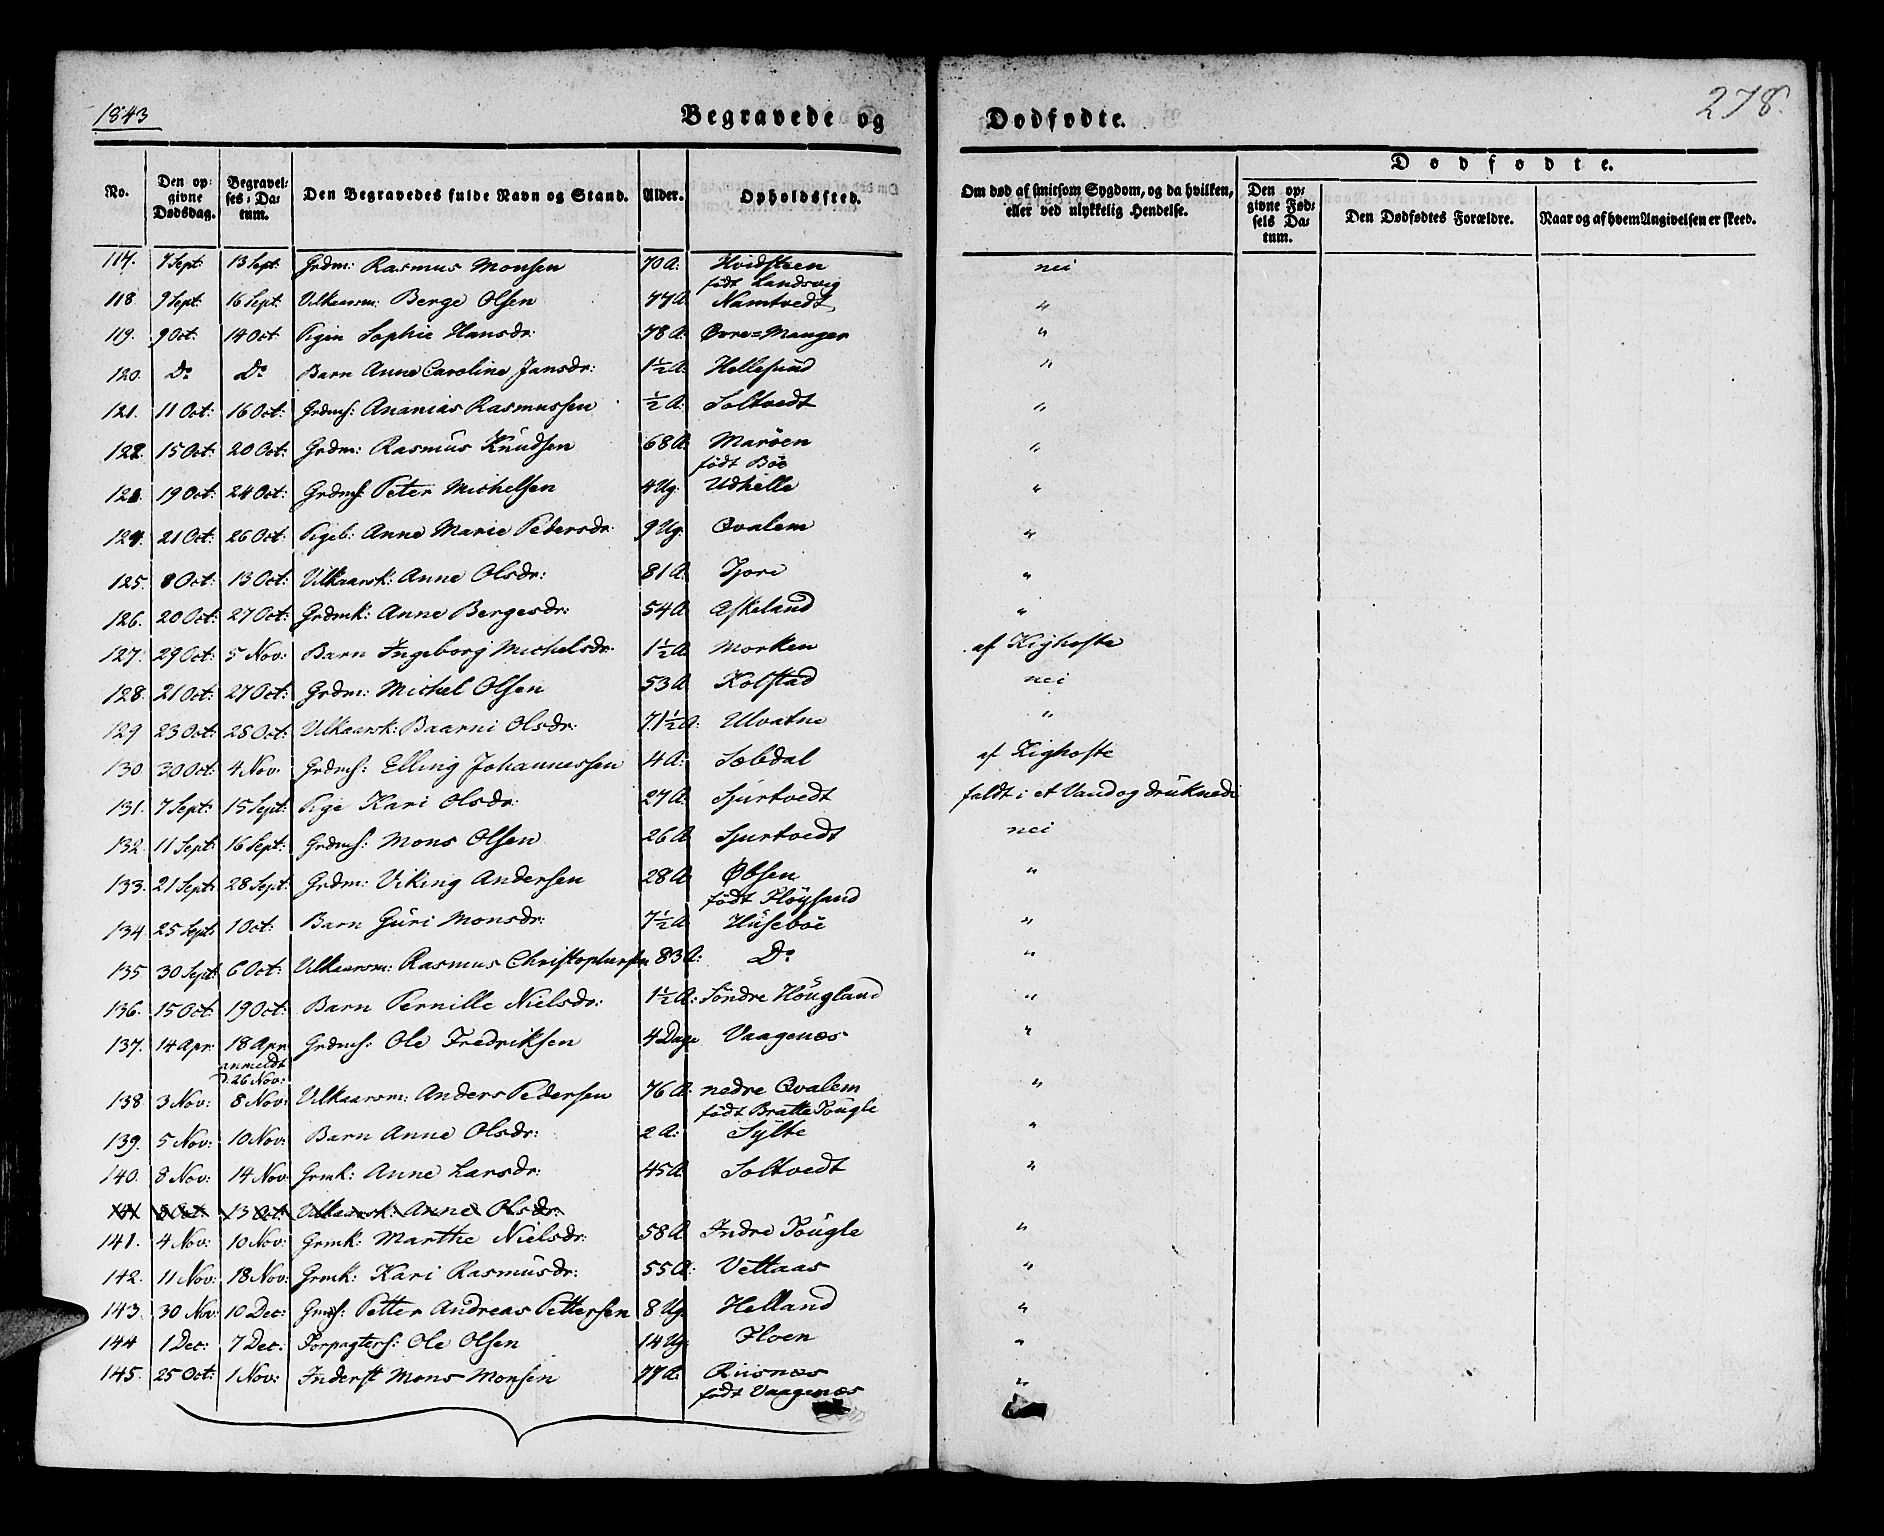 1843
Begravede og
Dødfødte.
278.
No.
Den opgivne Dødsdag.
Begravelses-Datum.
Den Begravedes fulde Navn og Stand.
Alder.
Opholdssted.
Om død af smitsom Sygdom, og da hvilken, eller ved ulykkelig Hendelse.
Dødfødte.
Den opgivne Fødsels Datum.
Den Dødfødtes Forældre.
Naar og af hvem Angivelsen er skeed.
117. 7 Sept: 13 Sept: Grdm: Rasmus Monsen 70 A: Hvidsteen nei
født Landsvig
118 9 Sept: 16 Sept: Vilkaarsm: Berge Olsen 77 A Namtvedt "
119. 9 Oct: 14 Oct: Pigen Sophie Hansdr: 78 A: Øvre=Manger "
120. Do Do Barn Anne Caroline Jansdr: 1½ A: Hellesund "
121. 11 Oct: 16 Oct: Grdms: Ananias Rasmussen ½ A: Soltvedt "
122. 15 Oct: 20 Oct: Grdm: Rasmus Knudsen 68 A: Marøen "
født Bøe
123. 19 Oct: 24 Oct: Grdms: Peter Michelsen 4 Ug. Udhelle "
124. 21 Oct: 26 Oct: Pigeb: Anne Marie Pedersdr: 9 Ug. Qvalem "
125. 8 Oct: 13 Oct: Vilkaarsk: Anne Olsdr: 81 A: Tjore "
126. 20 Oct: 27 Oct: Grdmk: Anne Bergesdr: 54 A: Askeland "
127. 29 Oct: 5 Nov: Barn Ingeborg Michelsdr: 1½ A Morken af Kighoste
128. 21 Oct: 27 Oct: Grdm: Michel Olsen 53 A Kolstad nei
129 23 Oct: 28 Oct: Vilkaarsk: Baarni Olsdr: 71½ A: Ulvatne "
130 30 Oct: 4 Nov: Grdms: Elling Johannessen 4 A: Sæbdal af Kighoste
131. 7 Sept: 15 Sept: Pige Kari Olsdr: 27 A: Sjurtvedt faldt i et Vand og druknede
132. 11 Sept: 16 Sept: Grdms: Mons Olsen 26 A Sjurtvedt nei
133. 21 Sept: 28 Sept: Grdm: Viking Andersen 28 A: Øbsen "
født Fløysand
134. 25 Sept: 1 Oct: Barn Guri Monsdr: 7½ A Husebøe "
135 30 Sept: 6 Oct: Vilkaarsm: Rasmus Christophersen 83 A: Do "
136. 15 Oct: 19 Oct: Barn Pernille Nielsdr: 1½ A: Søndre Høugland "
137. 14 Apr: 18 Apr: Grdms: Ole Fredriksen 4 Dage Vaagenæs "
anmeldt
d. 26 Nov:
138 3 Nov: 8 Nov: Vilkaarsm: Anders Pedersen 76 A: nedre Qvalem "
født Bratte Fougle
139. 5 Nov: 10 Nov: Barn Anne Olsdr: 2 A: Sylte "
140. 8 Nov: 14 Nov: Grmk: Anne Larsdr: 45 A: Soltvedt "
141 8 Oct: 13 Oct: Vilkaarsk: Anne Olsdr:
141. 4 Nov: 10 Nov: Grmk: Marthe Nielsdr: 58 A Indre Fougle "
142. 11 Nov: 18 Nov: Grmk: Kari Rasmusdr: 55 A: Vettaas "
143. 30 Nov: 10 Dec: Grms: Petter Andreas Pettersen 8 Ug. Helland "
144 1 Dec: 7 Dec: Forpagters: Ole Olsen 14 Ug. Floen "
145. 25 Oct: 1 Nov: Inderst Mons Monsen 77 A: Riisnæs "
født Vaagenæs